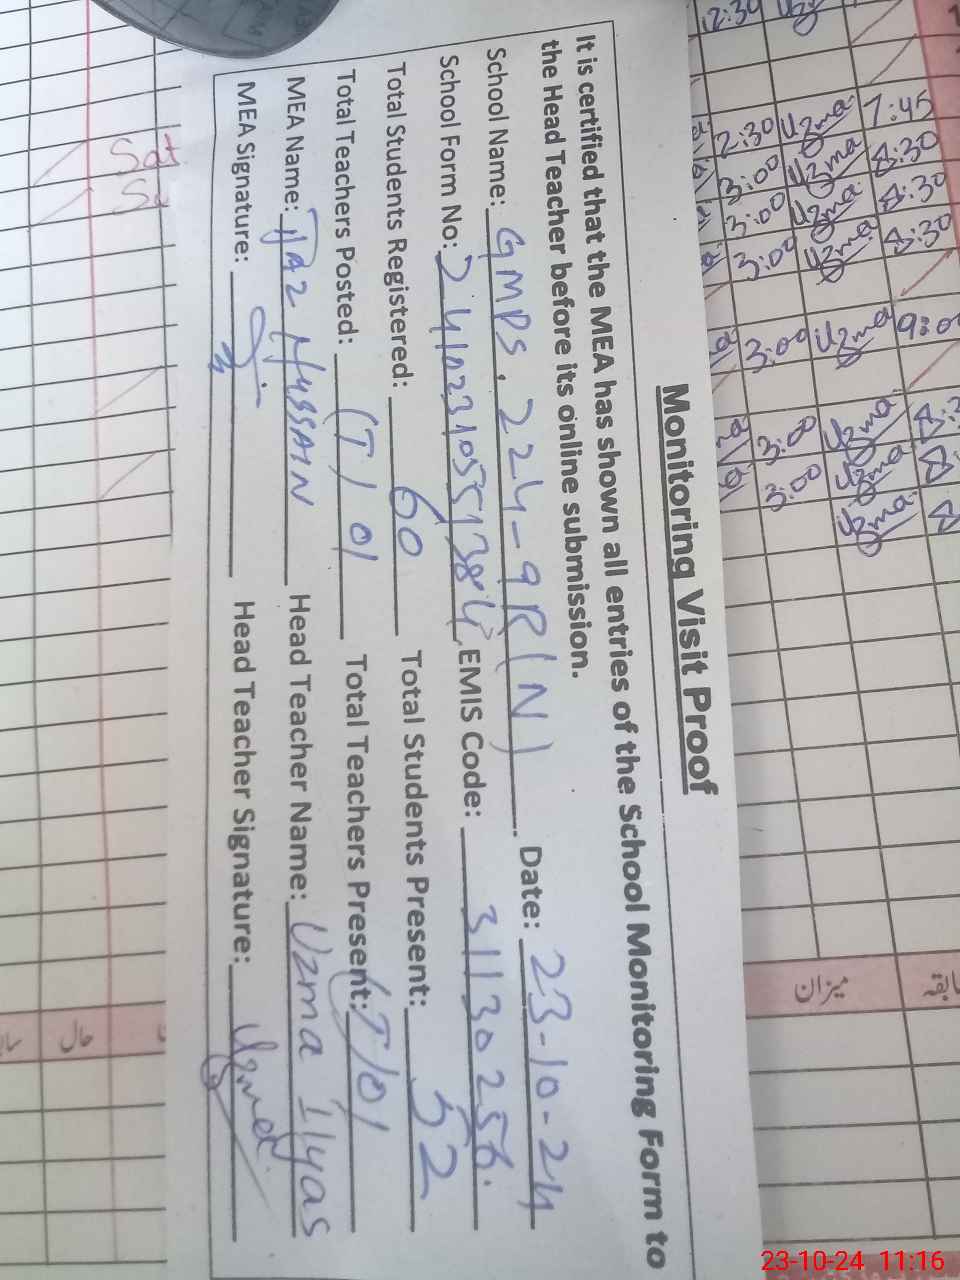 Monitoring Visit Proof
It is certified that the MEA has shown all entries of the School Monitoring Form to
the Head Teacher before its online submission.
School Name: GMPS, 224-9R(N) Date: 23-10-24
School Form No: EMIS Code: 31130256
Total Students Registered: 60 Total Students Present: 52
Total Teachers Posted: (T) 01 Total Teachers Present: (T) 01
MEA Name: HUSSAIN Head Teacher Name: Uzma Ilyas
MEA Signature: Head Teacher Signature: Uzma
12:30
2:30 Uzma 7:45
3:00 Uzma 8:30
3:00 Uzma 8:30
3:00 Uzma 8:30
3:00 Uzma
3:00 Uzma
3:00 Uzma
Uzma
Sat
میزان
حال
23-10-24 11:16